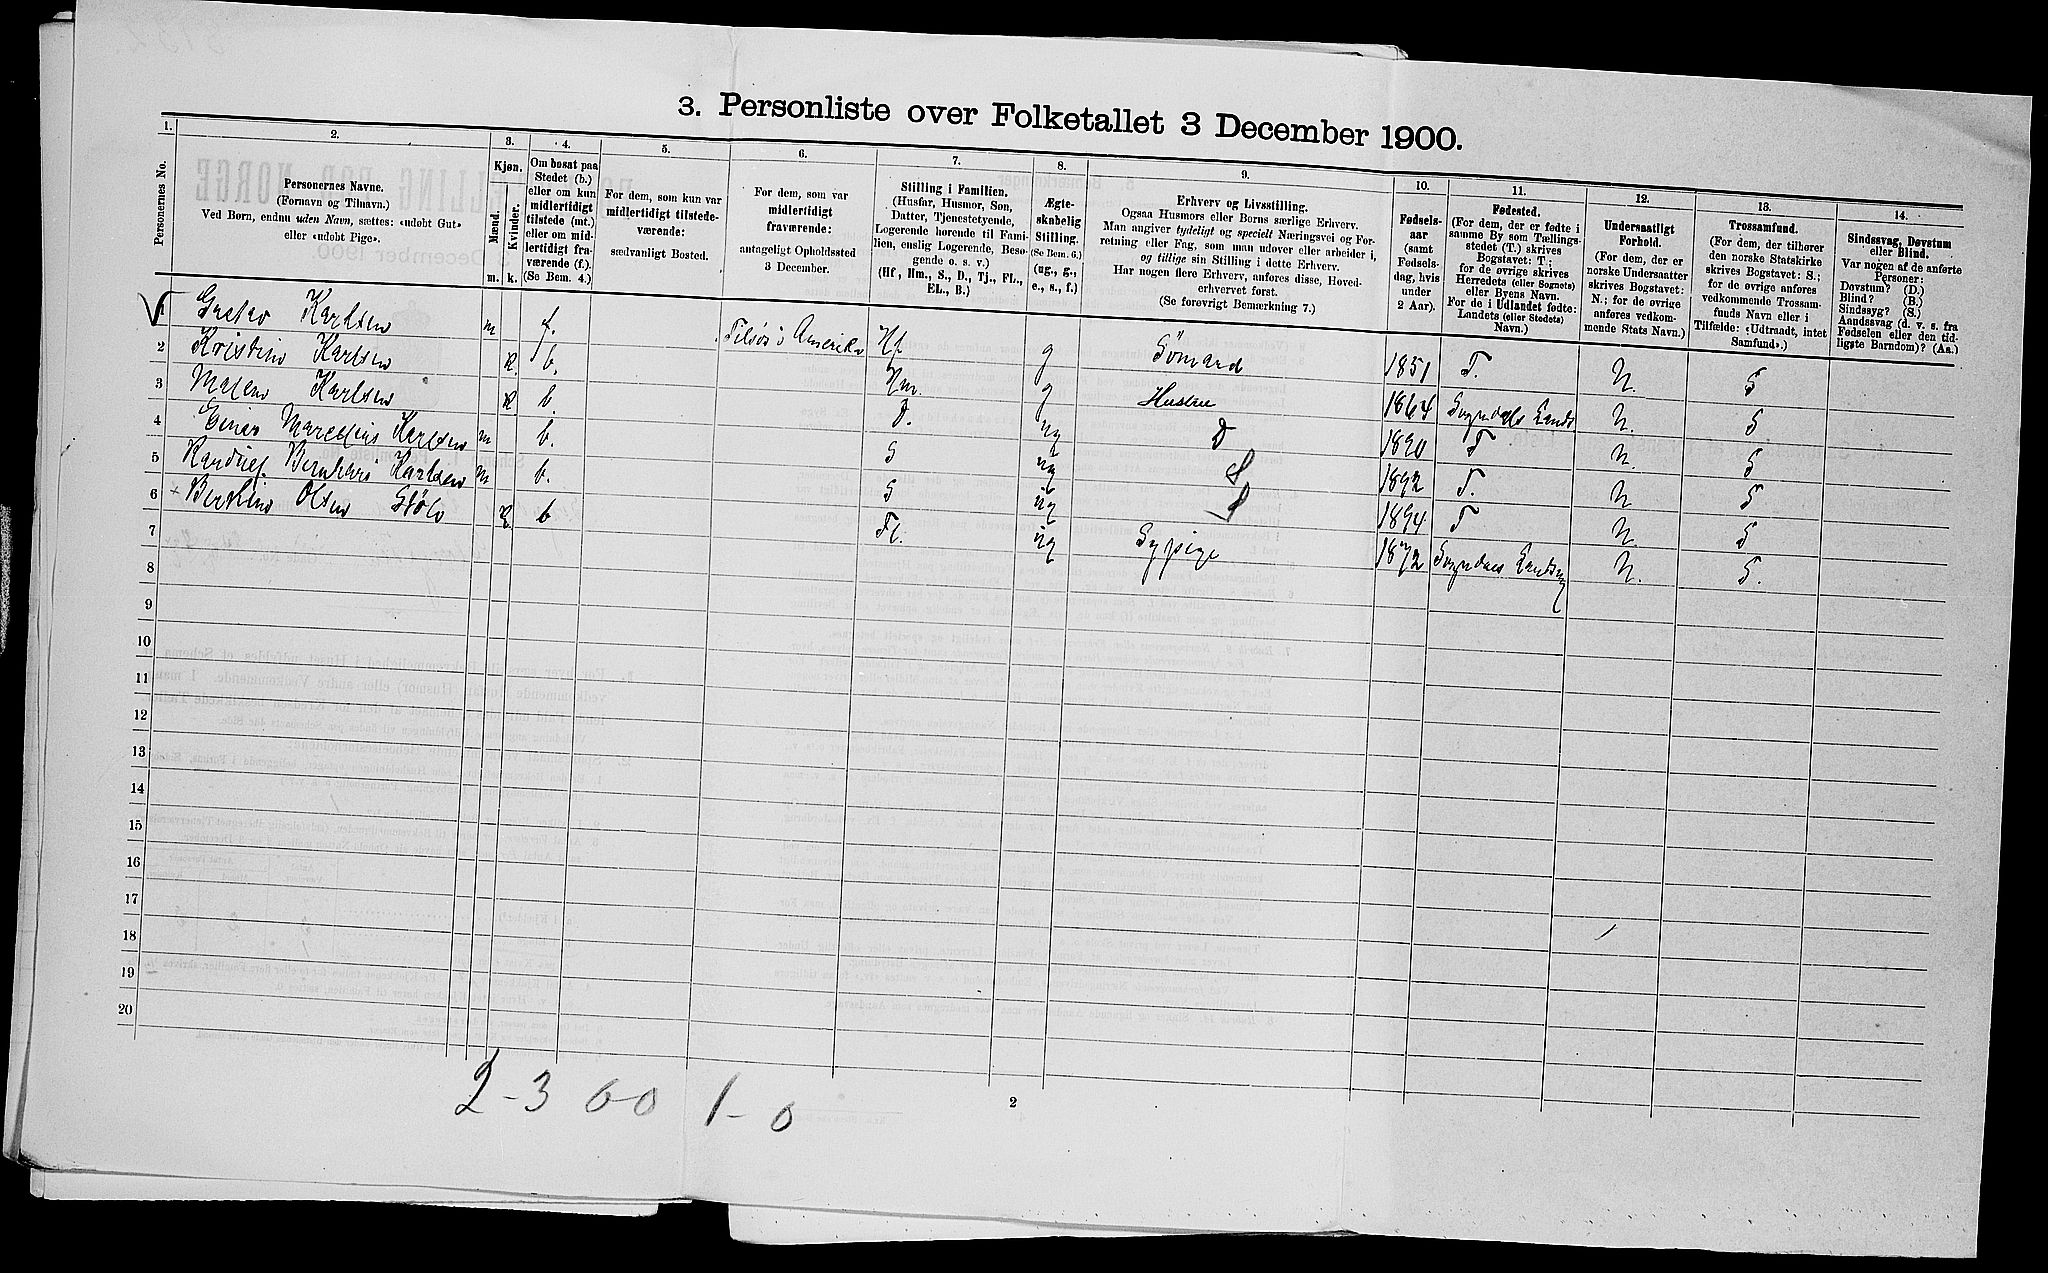 3. Personliste over Folketallet 3 December 1900.
1. 2. 3. 4. 5. 6. 7. 8. 9. 10. 11. 12. 13. 14.
Personernes No.
Personernes Navne.
(Fornavn og Tilnavn.)
Ved Børn, endnu uden Navn, sættes: «udøbt Gut»
eller «udøbt Pige».
Kjøn.
Mænd.
Kvinder.
m. k.
Om bosat paa
Stedet (b.)
eller om kun
midlertidigt
tilstede (mt.)
eller om mid-
lertidigt fra-
værende (f.).
(Se Bem. 4.)
For dem, som kun var
midlertidigt tilstede-
værende:
sædvanligt Bosted.
For dem, som var
midlertidigt
fraværende:
antageligt Opholdssted
3 December.
Stilling i Familien.
(Husfar, Husmor, Søn,
Datter, Tjenestetyende,
Logerende hørende til Fami-
lien, enslig Logerende, Besø-
gende o. s. v.)
(Hf, Hm., S., D., Tj., FL.,
EL., B.)
Ægte-
skabelig
Stilling.
(Se Bem. 6.)
(ug., g.,
e., s., f.)
Erhverv og Livsstilling.
Ogsaa Husmors eller Børns særlige Erhverv.
Man angiver tydeligt og specielt Næringsvei og For-
retning eller Fag, som man udøver eller arbeider i,
og tillige sin Stilling i dette Erhverv.
Har nogen flere Erhverv, anføres disse, Hoved-
erhvervet først.
(Se forøvrigt Bemærkning 7.)
Fødsels-
aar
(samt
Fødsels-
dag, hvis
under
2 Aar).
Fødested.
(For dem, der er fødte i
samme By som Tællings-
stedet (T.) skrives
Bogstavet: T.;
for de øvrige skrives
Herredets (eller Sognets)
eller Byens Navn.
For de i Udlandet fødte:
Landets (eller Stedets)
Navn.)
Undersaatligt
Forhold.
(For dem, der er
norske Undersaatter
skrives Bogstavet:
N.; for de øvrige
anføres vedkom-
mende Stats Navn.)
Trossamfund.
(For dem, der tilhører
den norske Statskirke
skrives Bogstavet: S.;
for de øvrige anføres
vedkommende Trossam-
funds Navn eller i
Tilfælde: «Udtraadt, intet
Samfund».)
Sindssvag, Døvstum
eller Blind.
Var nogen af de anførte
Personer:
Døvstum? (D.)
Blind? (B.)
Sindssyg? (S.)
Aandssvag (d. v. s. fra
Fødselen eller den tid-
ligste Barndom)? (Aa.)
1 Gustav Karlsen m f. Tilsøs i Amerika Hf g Sömand 1851 T. N. S
2 Kristine Karlsen k. b. Hm. g Hustru 1864 Sogndals Lands N. S.
3 Malene Karlsen k b. D. ug D 1890 T N. S
4 Einar Marcelius Karlsen m b. S ug S 1892 T. N S
5 Bernhard Karlsen m b. S ug S 1894 T N. S
6 Berthine Olsen Stöle k b Fl. ug Sypige 1872 Sogndals Landsog N. S.
7
8
9
10
11
12
13
14
15
16
17
18
19
20
2-3 0-0 1-0
2